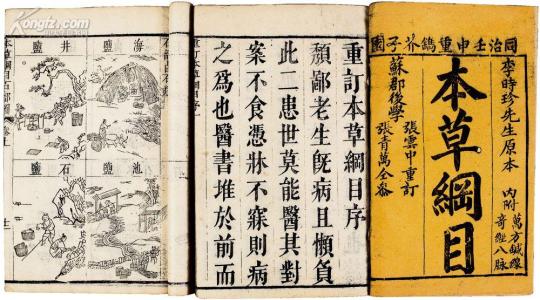 同治壬申重鐫芥子園
李時珍先生原本
內附
萬方鍼線
奇經八脉
本草綱目
蘇郡後學
張雲中重訂
張青萬仝參
重訂本草綱目序
頹鄙老生旣病且懶負
此二患世莫能醫其對
案不食憑牀不寐則病
之爲也醫書堆於前而
海鹽
井鹽
池鹽
石鹽
本草綱目